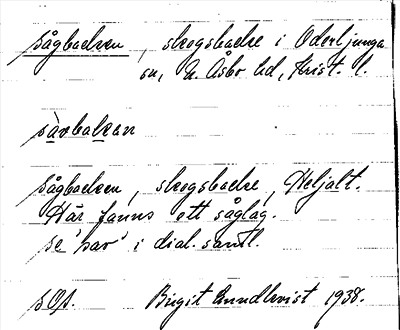 Sågbacken, skogsbacke i Oderljunga
sn, N. Åsbo hd, Krist. l.
sàvbakan
Sågbacken, skogsbacke, Heljalt.
Här fanns ett såglag.
se 'sav' i dial. saml.
s Of. Birgit Lundkvist 1938.